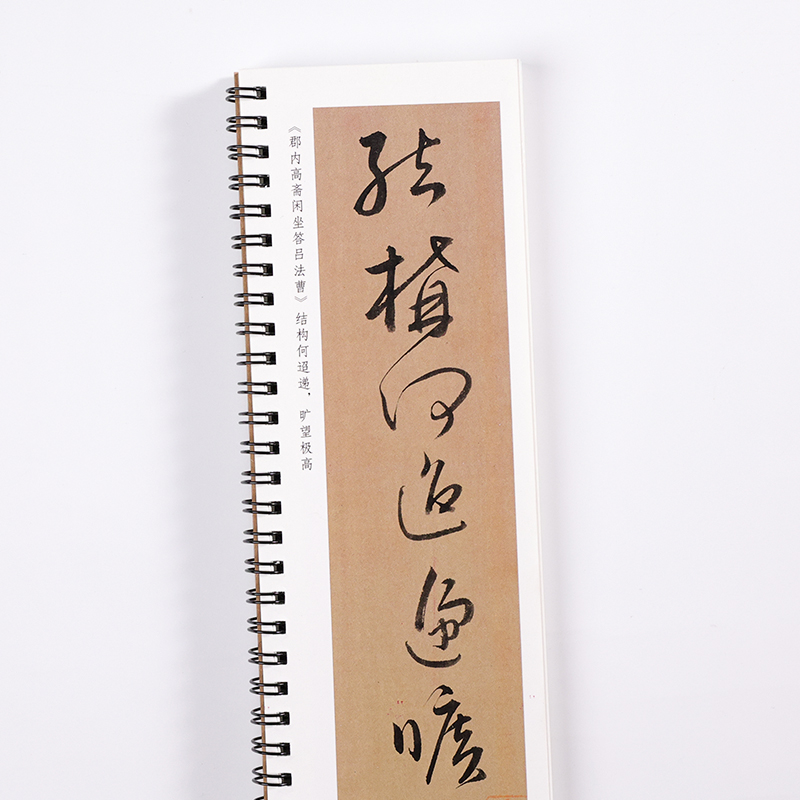 《郡内高斋闲坐答吕法曹》 结构何迢递，旷望极高
结構何迢遞曠